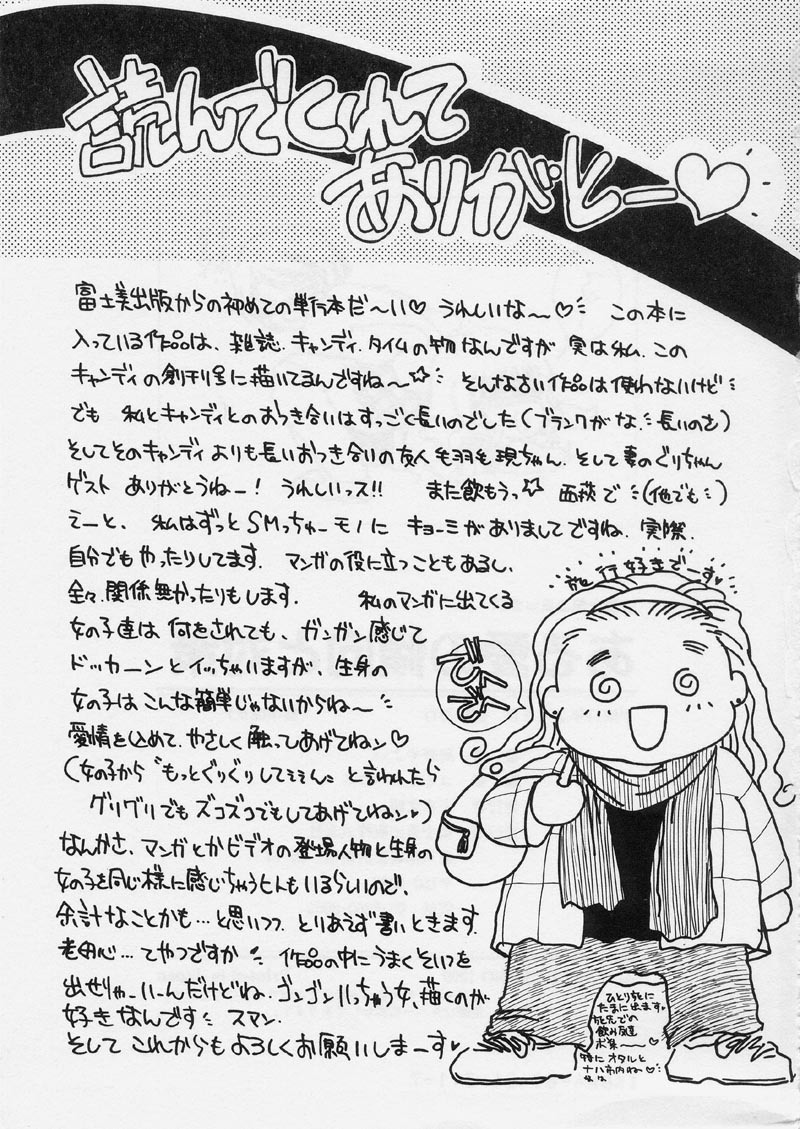 読んでくれて
ありがとー♡
富士美出版からの初めての単行本だ〜い♡ うれしいな〜♡ この本に
入っている作品は、雑誌・キャンディ・タイムの物なんですが 実は私、この
キャンディの創刊号に描いてるんですね〜☆ そんな古い作品は使わないけど
でも 私とキャンディとのおつき合いはすっごく長いのでした(ブランクがな、長いのさ)
そしてそのキャンディよりも長いおつき合いの友人 毛羽毛現ちゃん、そして妻のぐりちゃん
ゲスト ありがとうねー! うれしいっス!! また飲もうっ☆ 西荻で(他でも)
えーと、私はずっとSMっちゅーモノに キョーミがありましてですね、実際、
自分でもやったりしてます。マンガの役に立つこともあるし、
全々、関係無かったりもします。 私のマンガに出てくる
女の子達は 何をされても、ガンガン感じて
ドッカーンとイッちゃいますが、生身の
女の子はこんな簡単じゃないからね〜
愛情を込めて、やさしく触ってあげてねン♡
(女の子から〝もっとぐりぐりして と言われたら
グリグリでもズコズコでもしてあげてねン♥)
なんかさ、マンガとかビデオの登場人物と生身の
女の子を同じ様に感じちゃうヒトもいるらしいので、
余計なことかも…と思いつつ、とりあえず書いときます。
老囲心…てやつですか 作品の中にうまくそいつを
出せりゃーいーんだけどね、ゴンゴンいっちゃう女、描くのが
好きなんです スマン。
そして これからもよろしくお願いしまーす♥
旅行好きでーす♥
ひとりたびに
たまに出ます♥
飲み友達
ボ集〜♡
特にオタルと